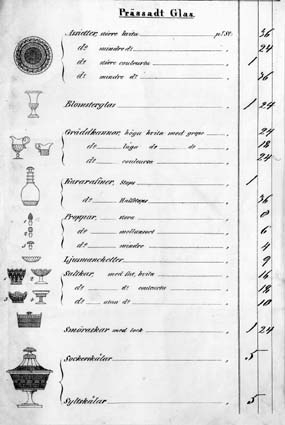 Prässadt Glas
Assietter, större hvita p.St. 36
do mindre do 24
do större couleurta 1
do mindre do 36
Blomsterglas 1 24
Gräddkannor, höga hvita med grepe 24
do låga do do 18
do couleurta 24
Karaffiner, Stops 1
do Halfstops 36
Proppar, stora 8
do mellansort 6
do mindre 4
Ljusmanchetter 9
Saltkar, med fot, hvita 16
do do couleurta 18
do utan do 10
Smöraskar med lock 1 24
Sockerskålar 5
Syltskålar 5